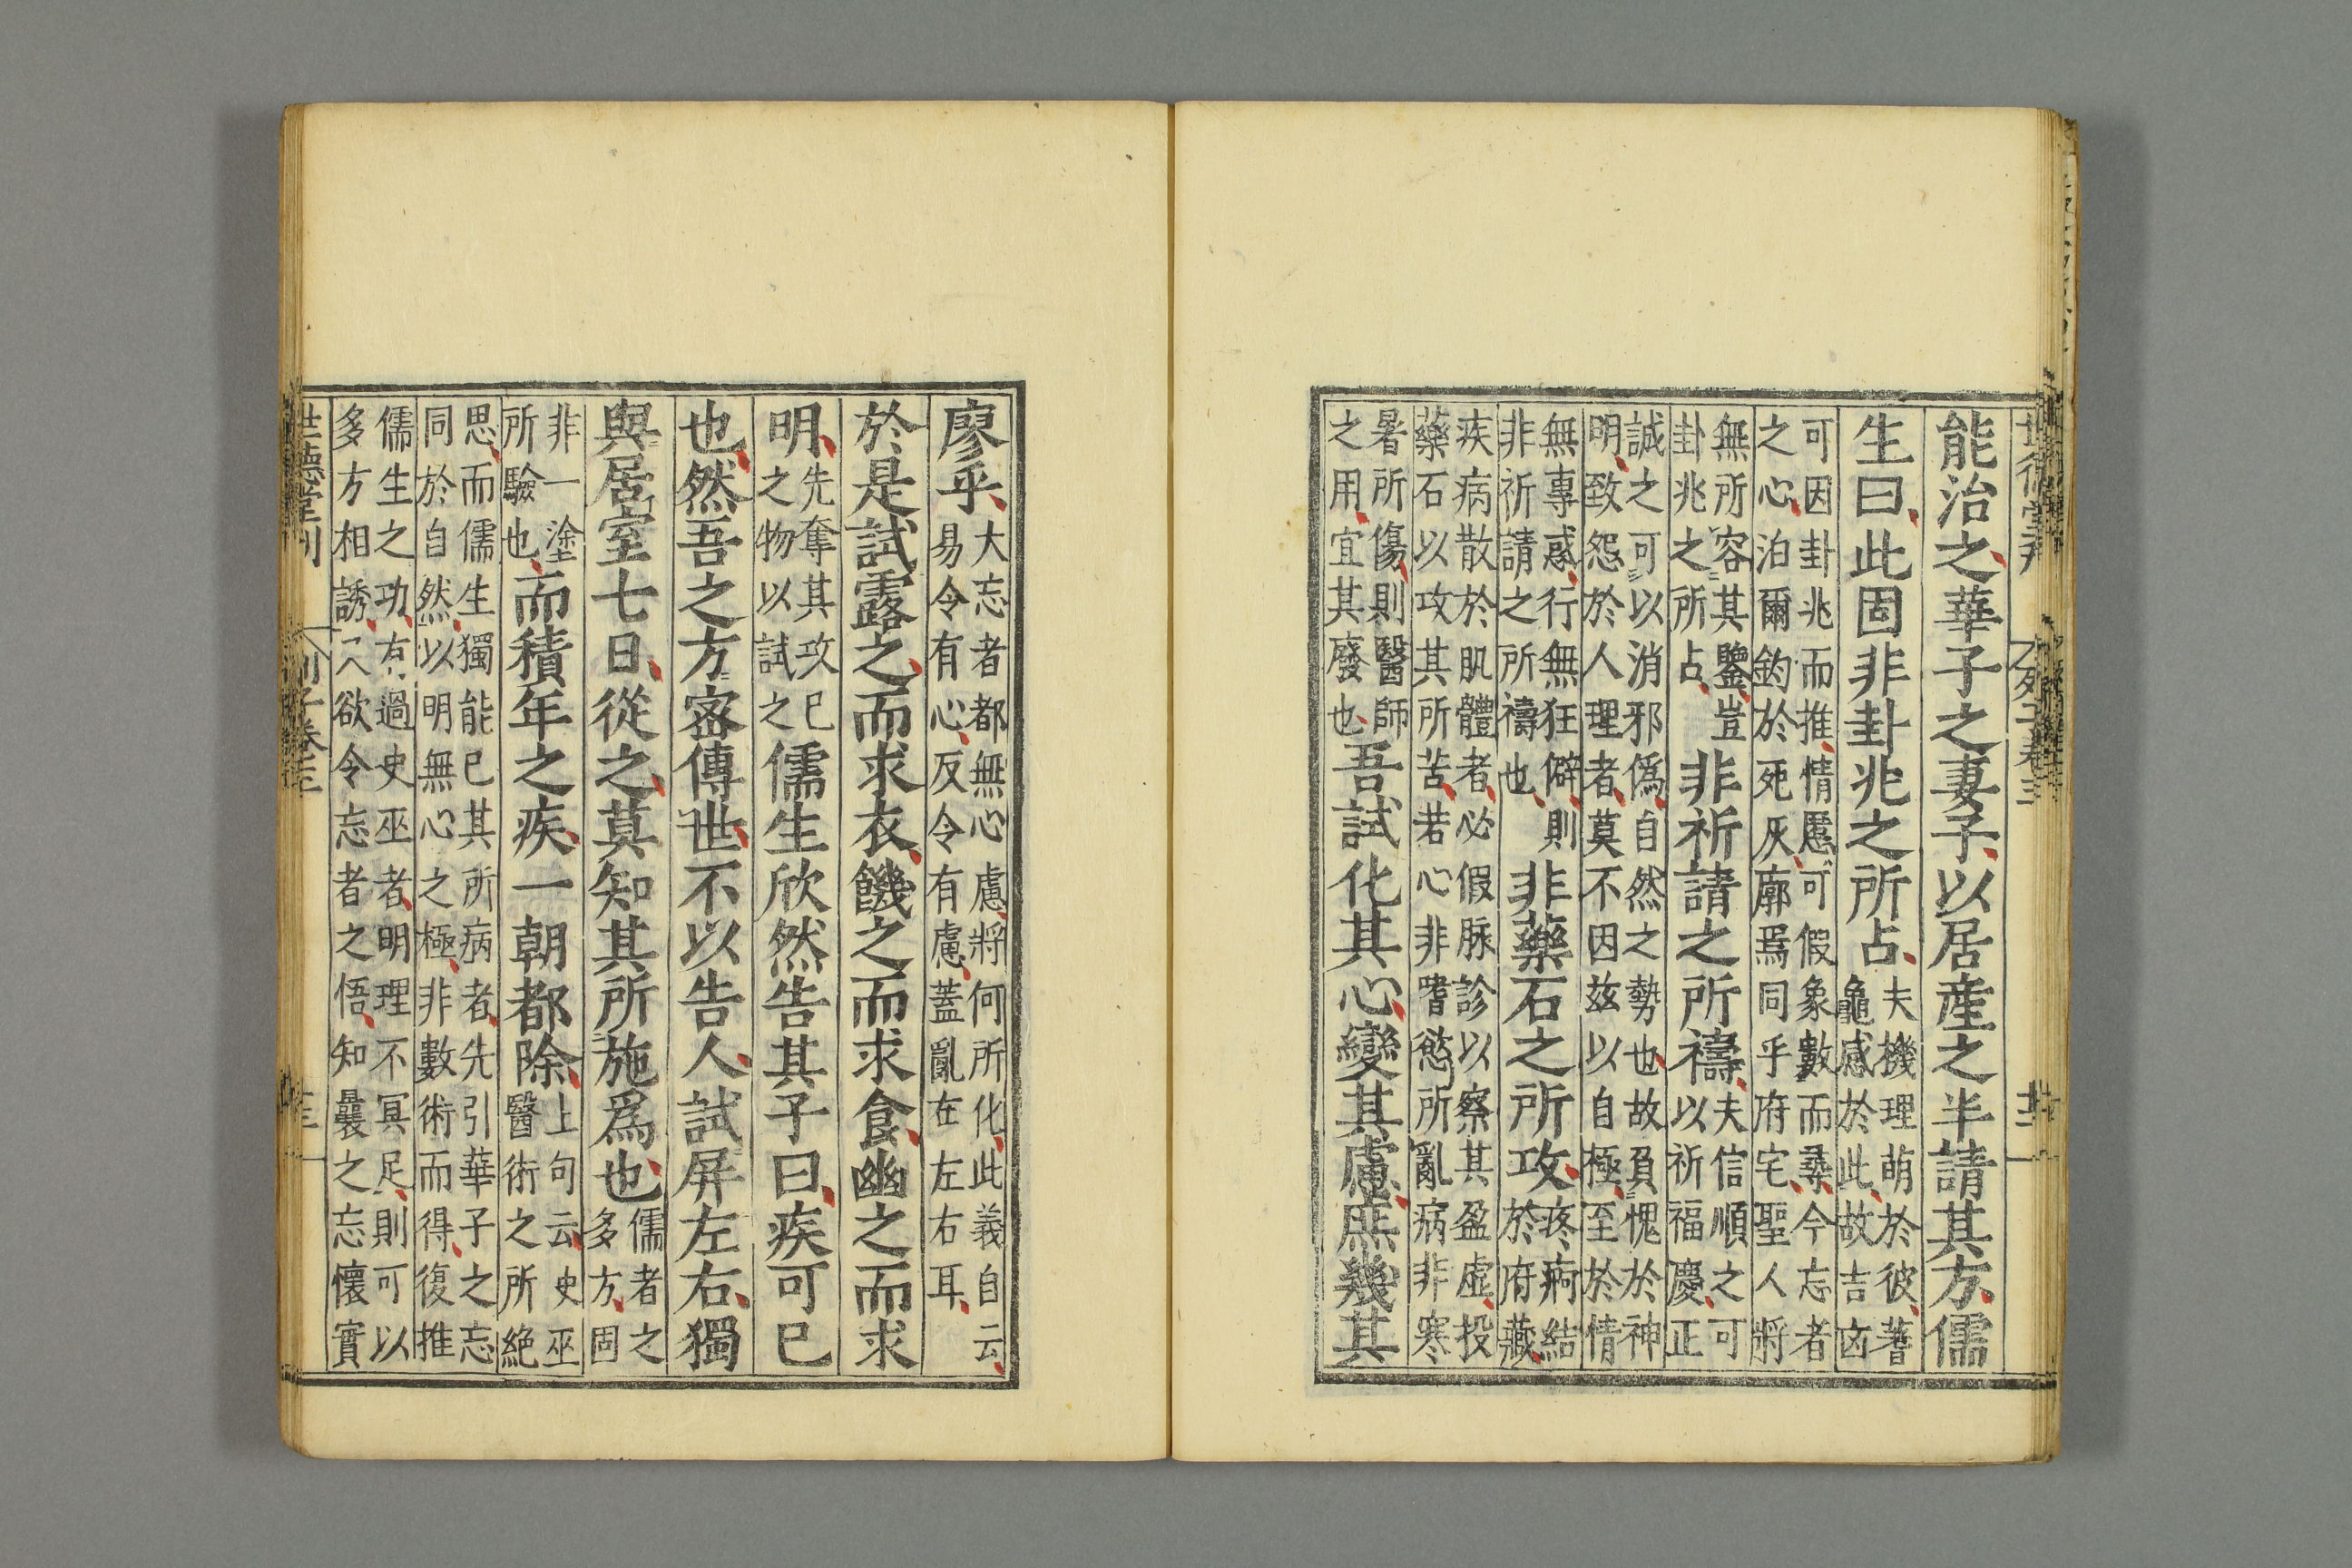 世德堂刊 列子卷三
能治之華子之妻子以居産之半請其方儒
生曰此固非卦兆之所占夫機理萌於彼蓍龜感於此故吉凶
可因卦兆而推情慝可假象數而尋今忘者之心泊爾鈞於死灰廓焉同乎府宅聖人將
無所容其鑒豈卦兆之所占非祈請之所禱夫信順之可以祈福慶正
誠之可以消邪僞自然之勢也故負愧於神明致怨於人理者莫不因茲以自極至於情
無專惑行無狂僻則非祈請之所禱也非藥石之所攻疼痾結於府藏
疾病散於肌體者必假脉診以察其盈虛投藥石以攻其所苦若心非嗜慾所亂病非寒
暑所傷則醫師之用宜其廢也吾試化其心變其慮庶幾其
廖乎大忘者都無心慮將何所化此義自云易令有心反令有慮蓋亂在左右耳
於是試露之而求衣饑之而求食幽之而求
明先奪其攻已之物以試之儒生欣然告其子曰疾可已
也然吾之方密傳世不以告人試屏左右獨
與居室七日從之莫知其所施爲也儒者之多方固
非一塗所驗也而積年之疾一朝都除上句云史巫醫術之所絶
思而儒生獨能已其所病者先引華子之忘同於自然以明無心之極非數術而得復推
儒生之功有過史巫者明理不冥足則可以多方相誘又欲令忘者之悟知曩之忘懷實
世德堂刊 列子卷三